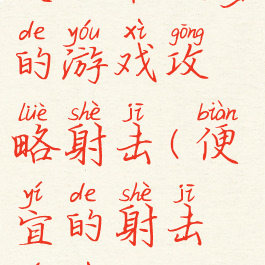 de yóu xì gōng
的游戏攻
lüè shè jī biàn
略射击(便
yí de shè jī
宜的射击